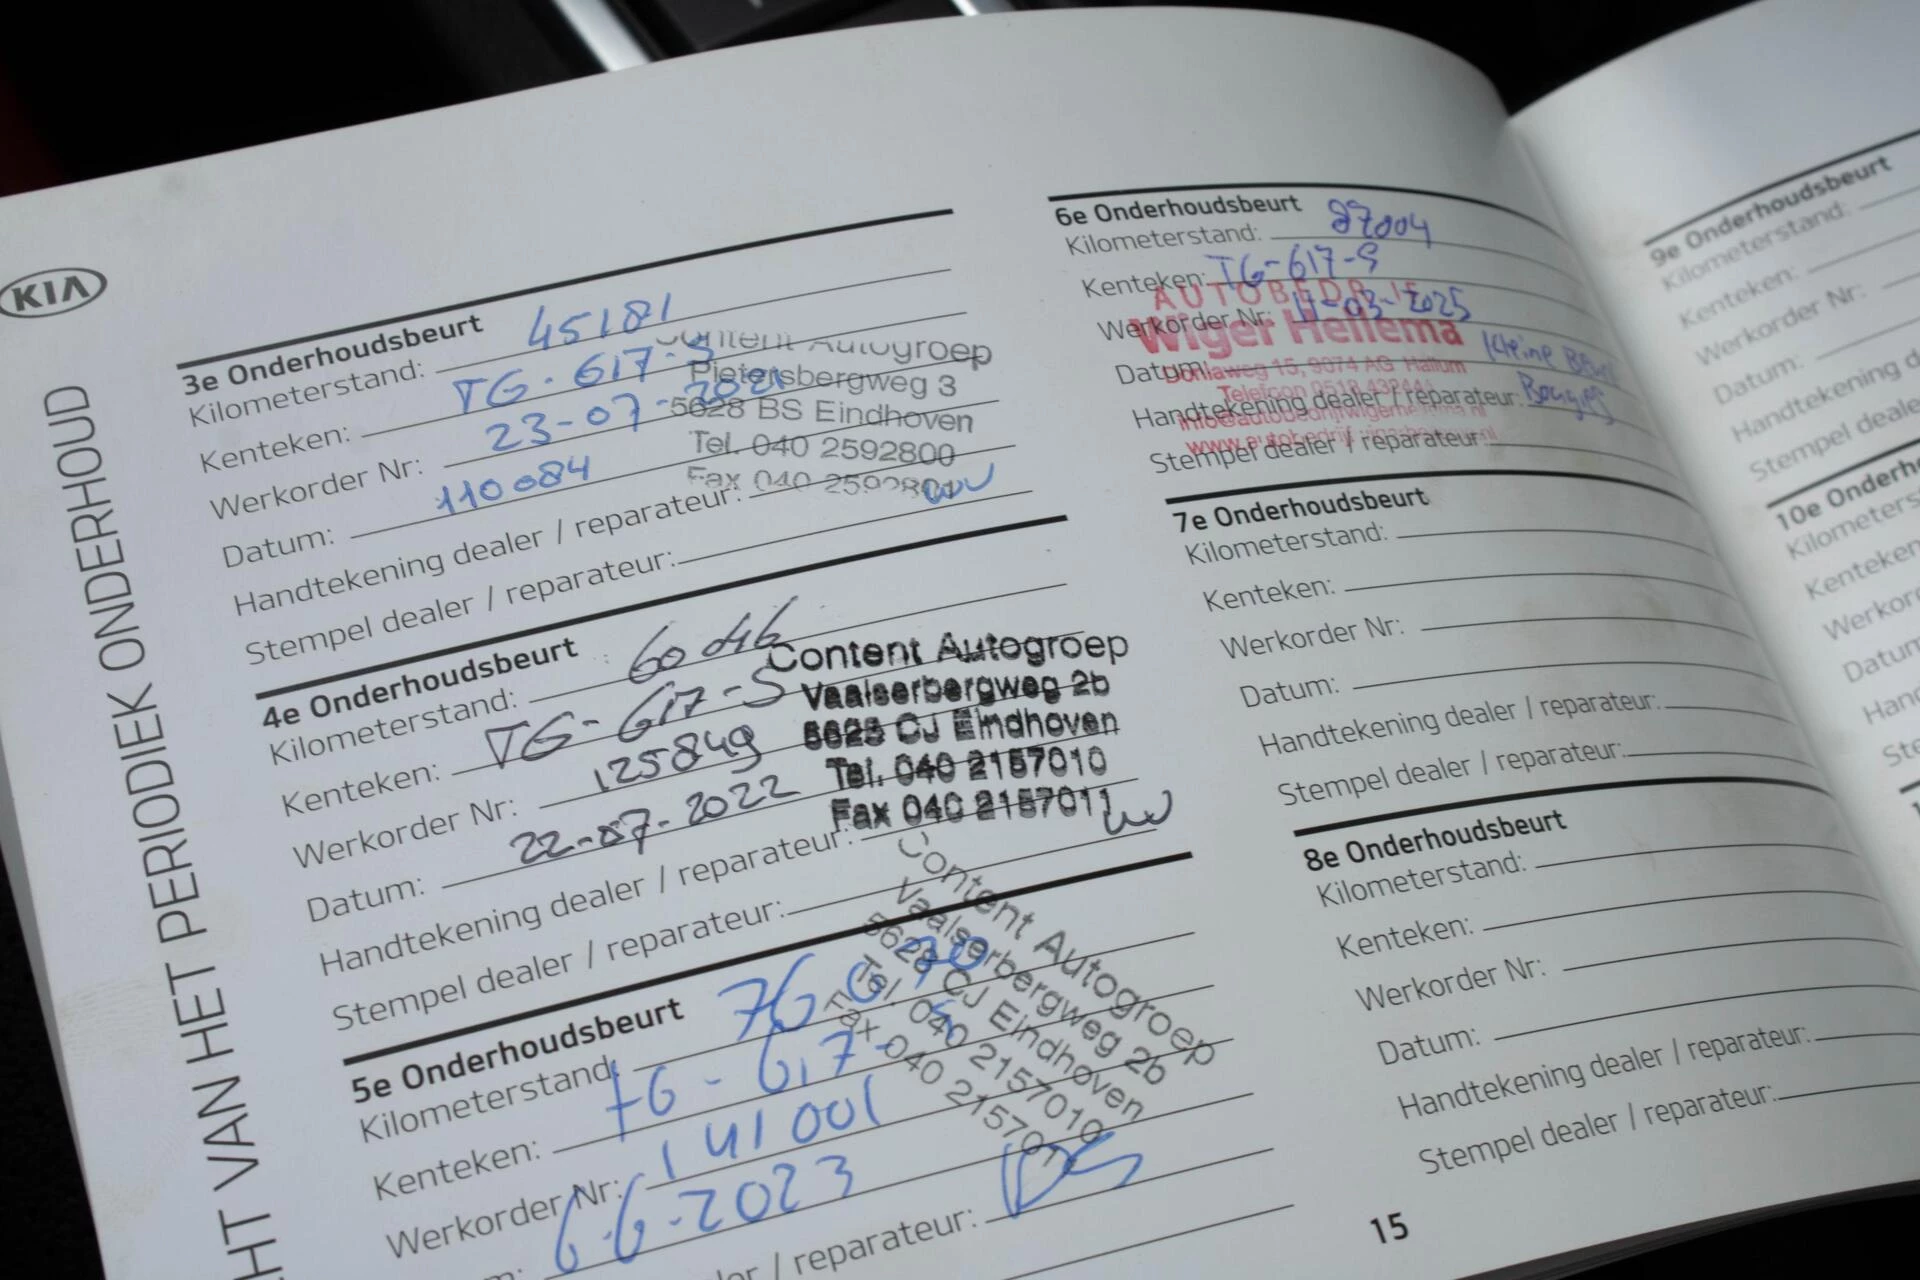 KIA
HT VAN HET PERIODIEK ONDERHOUD
3e Onderhoudsbeurt
Kilometerstand: 45181
Kenteken: TG-617-S
Werkorder Nr: 23-07-2021
Datum: 110084
Handtekening dealer / reparateur:
Stempel dealer / reparateur:
Content Autogroep
Pietersbergweg 3
5628 BS Eindhoven
Tel. 040 2592800
Fax 040 2592801
4e Onderhoudsbeurt
Kilometerstand: 60
Kenteken: TG-617-S
Werkorder Nr: 125849
Datum: 22-07-2022
Handtekening dealer / reparateur:
Stempel dealer / reparateur:
Content Autogroep
Vaalserbergweg 2b
5628 CJ Eindhoven
Tel. 040 2157010
Fax 040 2157011
5e Onderhoudsbeurt
Kilometerstand:
Kenteken: TG-617-S
Werkorder Nr: 141001
m: 6-6-2023
ler / reparateur:
Content Autogroep
Vaalserbergweg 2b
5628 CJ Eindhoven
Tel. 040 2157010
Fax 040 2157011
6e Onderhoudsbeurt
Kilometerstand: 87004
Kenteken: TG-617-S
Werkorder Nr: 11-03-2025
Datum: Kleine Beurt
Handtekening dealer / reparateur: Bougies
Stempel dealer / reparateur:
AUTOBEDRIJF
Wiger Hellema
15, 9074 AG Hallum
Telefoon 0518
7e Onderhoudsbeurt
Kilometerstand:
Kenteken:
Werkorder Nr:
Datum:
Handtekening dealer / reparateur:
Stempel dealer / reparateur:
8e Onderhoudsbeurt
Kilometerstand:
Kenteken:
Werkorder Nr:
Datum:
Handtekening dealer / reparateur:
Stempel dealer / reparateur:
15
9e Onderhoudsbeurt
Kilometerstand:
Kenteken:
Werkorder Nr:
Datum:
Handtekening d
Stempel deale
10e Onderh
Kilometers
Kenteken
Werkor
Datum
Han
Ste